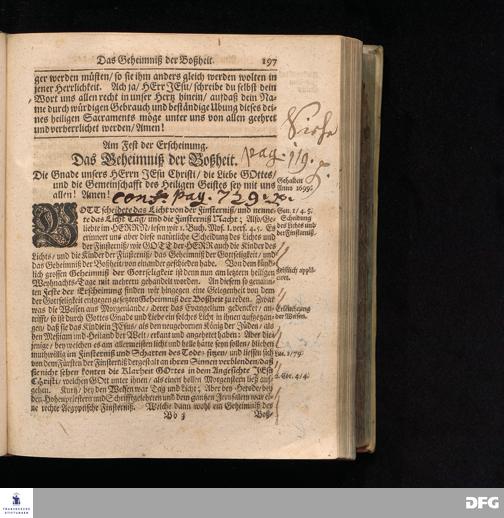 Das Geheimniß der Boßheit. 197
ger werden müsten/ so sie ihm anders gleich werden wolten in
jener Herrlichkeit. Ach ja/ HErr JEsu/ schreibe du selbst dein
Wort uns allen recht in unser Hertz hinein/ aufdaß dein Na-
me durch würdigen Gebrauch und beständige Ubung dieses dei-
nes heiligen Sacraments möge unter uns von allen geehret
und verherrlichet werden/ Amen!
Am Fest der Erscheinung.
Das Geheimniß der Boßheit.
Siehe
pag. 119.
Die Gnade unsers HErrn JEsu Christi/ die Liebe GOttes/
und die Gemeinschafft des Heiligen Geistes sey mit uns
allen! Amen!
conf. pag. 729.
Gehalten
Anno 1699.
GOTT scheidete das Licht von der Finsterniß/ und nenne-
te das Licht Tag/ und die Finsterniß Nacht; Also/ Ge-
liebte im HERRN/ lesen wir 1. Buch. Mos. 1. vers. 4. 5. Es
erinnert uns aber diese natürliche Scheidung des Lichts und
der Finsterniß/ wie GOTT der HERR auch die Kinder des
Lichts/ und die Kinder der Finsterniß/ das Geheimniß der Gottseligkeit/ und
das Geheimniß der Boßheit/ von einander geschieden habe. Von dem
lich grossen Geheimniß der Gottseligkeit ist denn nun am letztern heiligen
Weyhnachts-Tage mit mehrern gehandelt worden. An diesem so genann-
ten Feste der Erscheinung finden wir hingegen eine Gelegenheit von dem
der Gottseligkeit entgegen gesetzten Geheimniß der Boßheit zu reden. Zwar
was die Weisen aus Morgenlande/ derer das Evangelium gedencket/ an-
trifft/ so ist durch Gottes Gnade und Liebe ein solches Licht in ihnen aufgegan-
gen/ daß sie das Kindlein JEsus/ als den neugebornen König der Jüden/ als
den Messiam und Heiland der Welt/ erkant und angebetet haben: Aber die-
jenige/ bey welchen es am allermeisten licht und helle hätte seyn sollen/ blieben
muthwillig im Finsterniß und Schatten des Todes sitzen/ und liessen sich
von dem Fürsten der Finsterniß dergestalt an ihren Sinnen verblenden/ daß
sie nicht sehen konten die Klarheit GOttes in dem Angesichte JEsu
Christi/ welchen GOtt unter ihnen/ als einen hellen Morgenstern ließ auf-
gehen. Kurtz/ bey den Weisen war Tag und Licht; Aber bey Herode/ bey
den Hohenpriestern und Schrifftgelehrten und dem gantzen Jerusalem war ei-
ne rechte Aegyptische Finsterniß. Welche dann wohl ein Geheimniß der
Gen. 1/ 4. 5.
Scheidung
des Lichts und
der Finsterniß.
Geistlich appli-
ciret.
Erscheinung
der Weisen.
Luc. 1/ 79.
2. Cor. 4/ 4.
Bb 3
Boß-
FRANCKESCHE
STIFTUNGEN
DFG